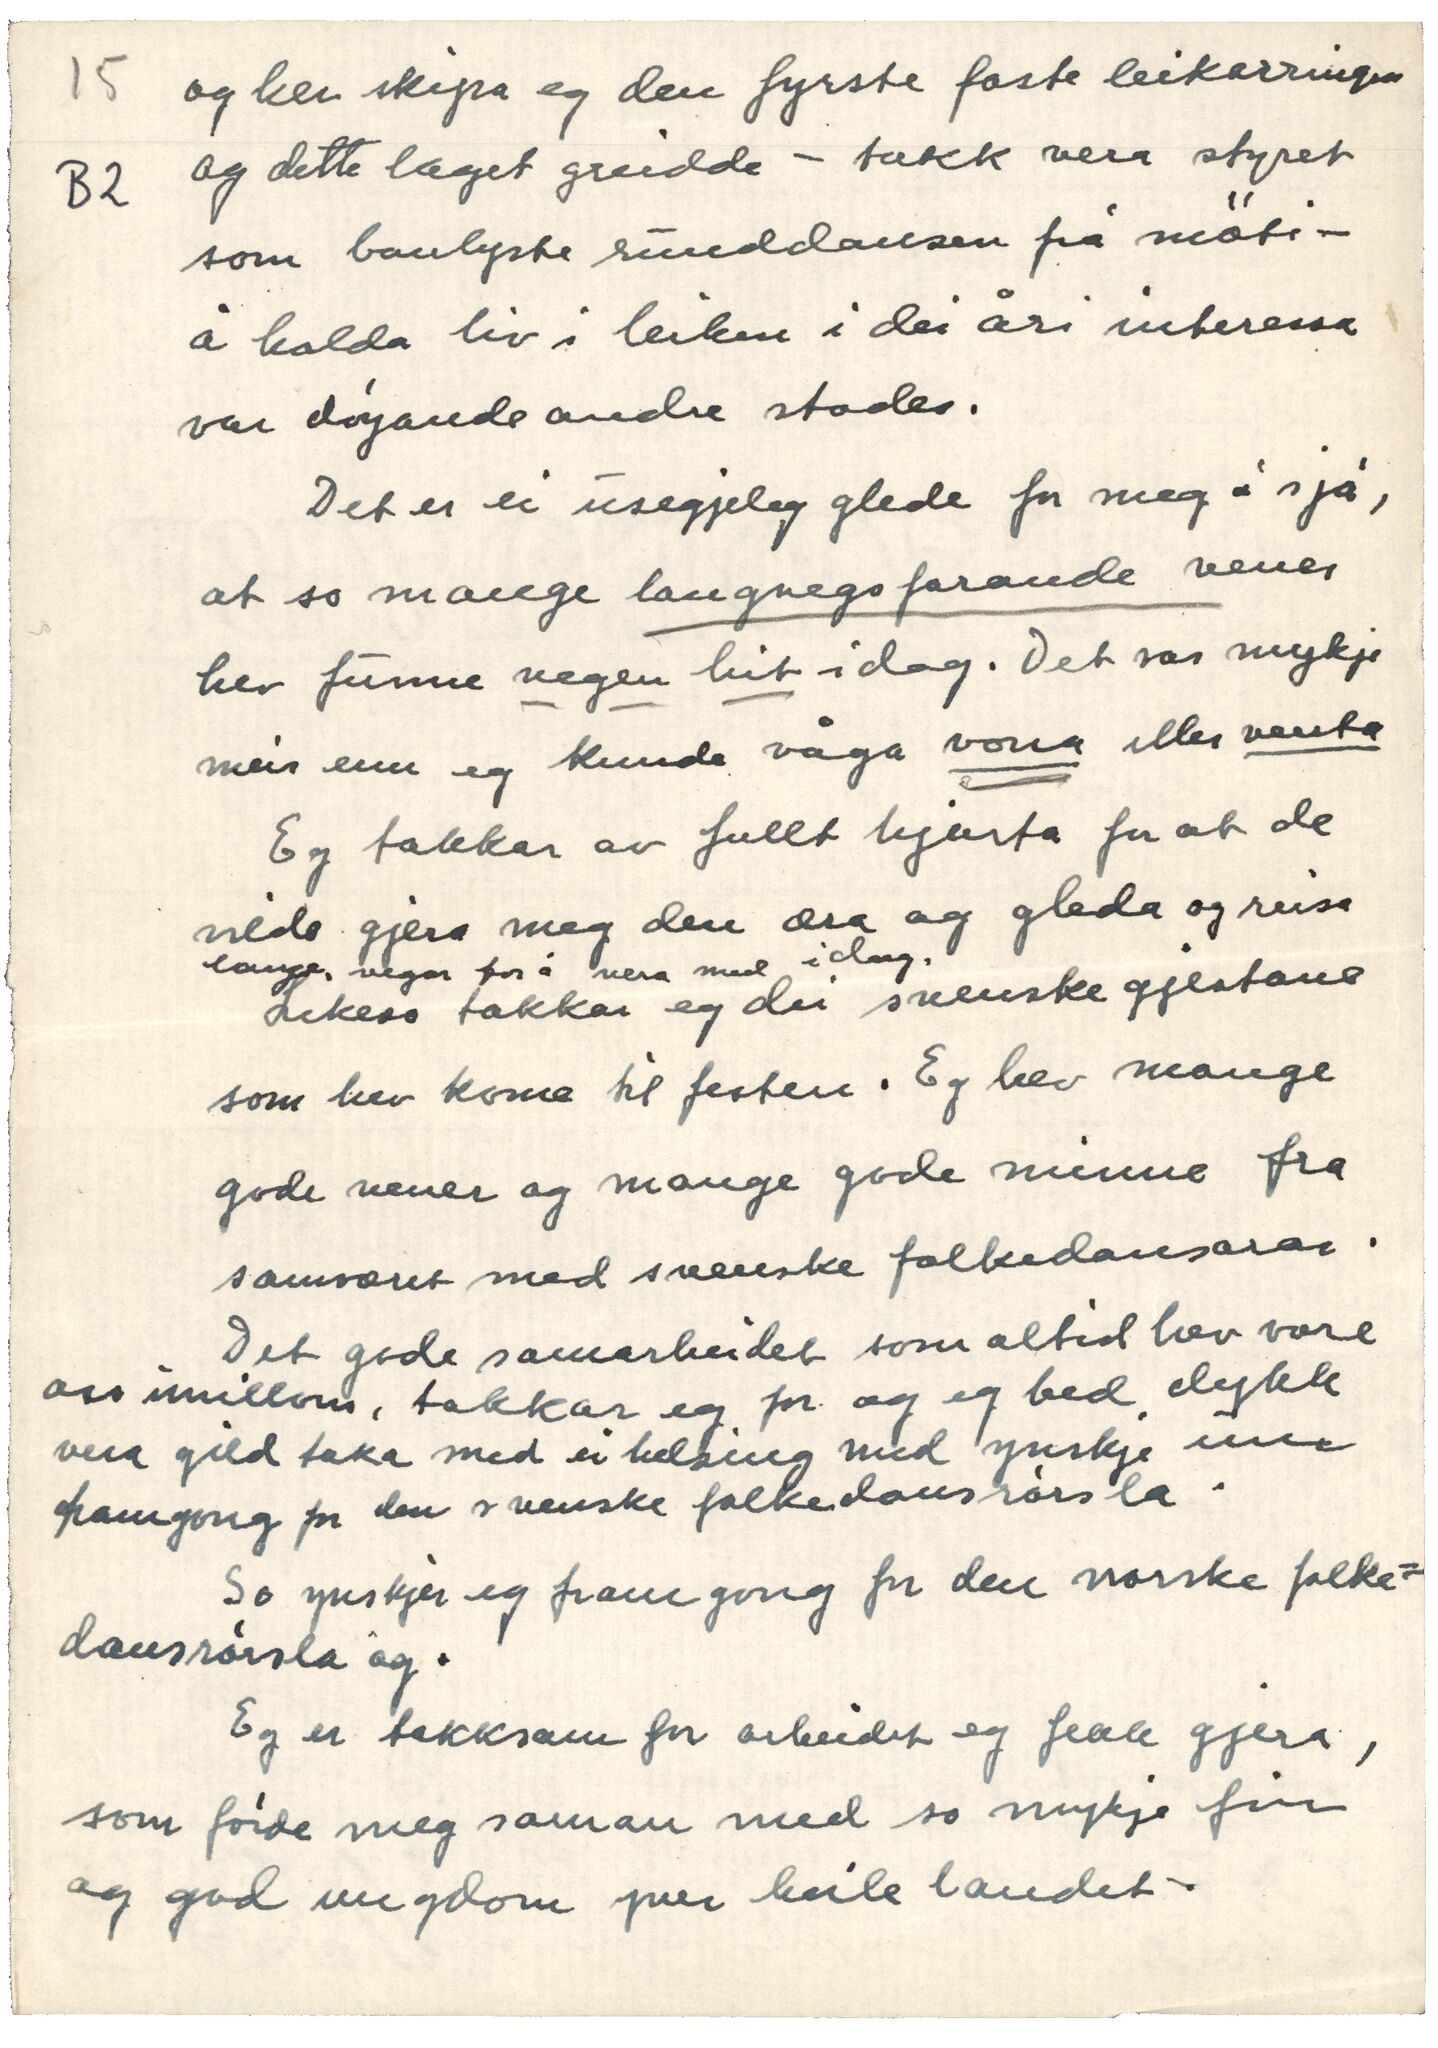 15
og her skipa eg den fyrste faste leikarringen
B2
og dette laget greidde - takk vera styret
som banlyste runddansen på möti -
å halda liv i leiken i dei åri interessa
var döyande andre stader.
Det er ei usegjeleg glede for meg å sjå,
at so mange langvegsfarande vener
hev funne vegen hit idag. Det var mykje
meir enn eg kunde våga vona eller venta
Eg takkar av fullt hjarta for at de
vilde gjera meg den æra og gleda og reisa
lange vegar for å vera med idag.
Likeso takkar eg dei svenske gjestane
som hev kome til festen. Eg hev mange
gode vener og mange gode minne fra
samværet med svenske folkedansarar.
Det gode samarbeidet som altid hev vore
oss imillom, takkar eg for og eg bed dykk
vera gild taka med ei helsing med ynskje um
framgong for den svenske folkedansrörsla.
So ynskjer eg framgong for den norske folke=
dansrörsla og.
Eg er takksam for arbeidet eg fekk gjera,
som förde meg saman med so mykje fin
og god ungdom yver heile landet -